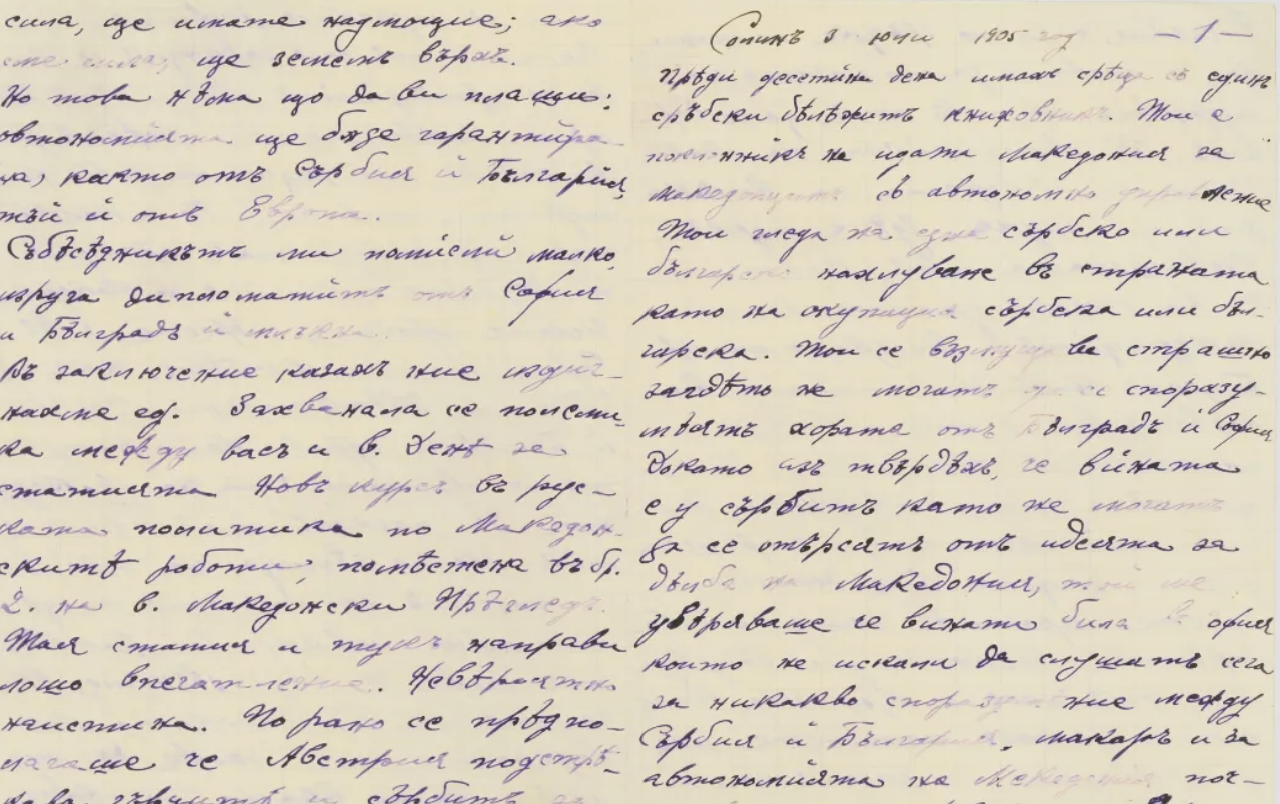 сила, ще имате надмощие; ако
сте сила, ще земемъ върхъ.
Но това нѣма що да ви плаши:
автономията ще бѫде гарантира
на, както отъ Сърбия и България,
тъй и отъ Европа.
Събесѣдникътъ ми помисли малко,
наруга дипломатитѣ отъ София
и Бѣлградъ и млъкна.
Въ заключение казахъ ние
нахме ед. Захванала се полеми-
ка между васъ и в. День за
статията Новъ курсъ въ рус-
ката политика по Македон-
скитѣ работи, помѣстена въ бр.
2. на в. Македонски Прѣгледъ.
Тая статия и тукъ направи
лошо впечатление. Невѣроятно
наистина. По рано се прѣдпо-
лагаше че Австрия подстрѣ-
кава гърцитѣ и сърбитѣ
Солунъ 3 юни 1905 год — 1 —
Прѣди десетина дена имахъ срѣща съ единъ
сръбски бѣлѣжитъ книжовникъ. Той е
поклонникъ на идеята Македония за
македонцитѣ съ автономно управление
Той гледа на една сърбско или
българско нахлуване въ страната
като на окупация сърбска или бъл-
гарска. Той се възмущава страшно
загдѣто не могатъ да се споразу-
мѣятъ хората отъ Бѣлградъ и София
Докато азъ твърдѣхъ, че вината
е у сърбитѣ като не могатъ
да се отърсятъ отъ идеята за
дѣлба на Македония, той ме
увѣряваше че вината била въ офия
които не искали да слушатъ сега
за никакво споразумение между
Сърбия и България, макаръ и за
автономията на Македония поч-